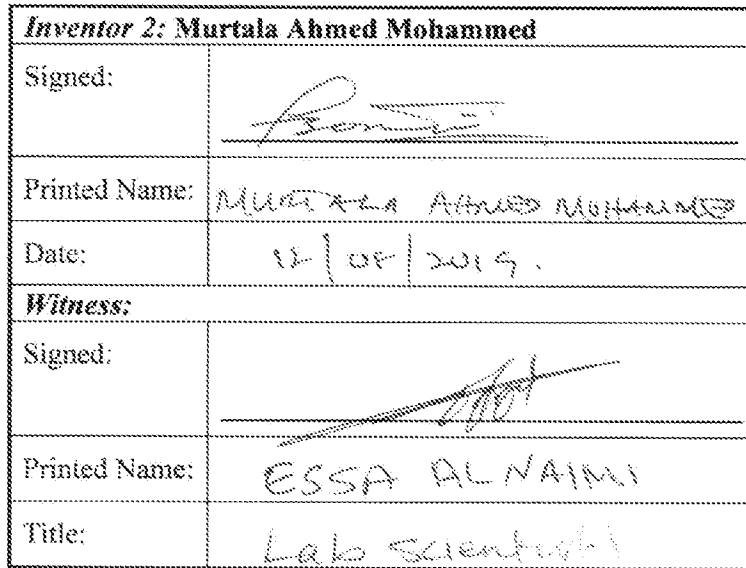 Inventor 2: Murtala Ahmed Mohammed
Signed:
Printed Name: MURTALA AHMED MOHAMMED
Date: /2019.
Witness:
Signed:
Printed Name: ESSA ALNAIMI
Title: Lab Scientist